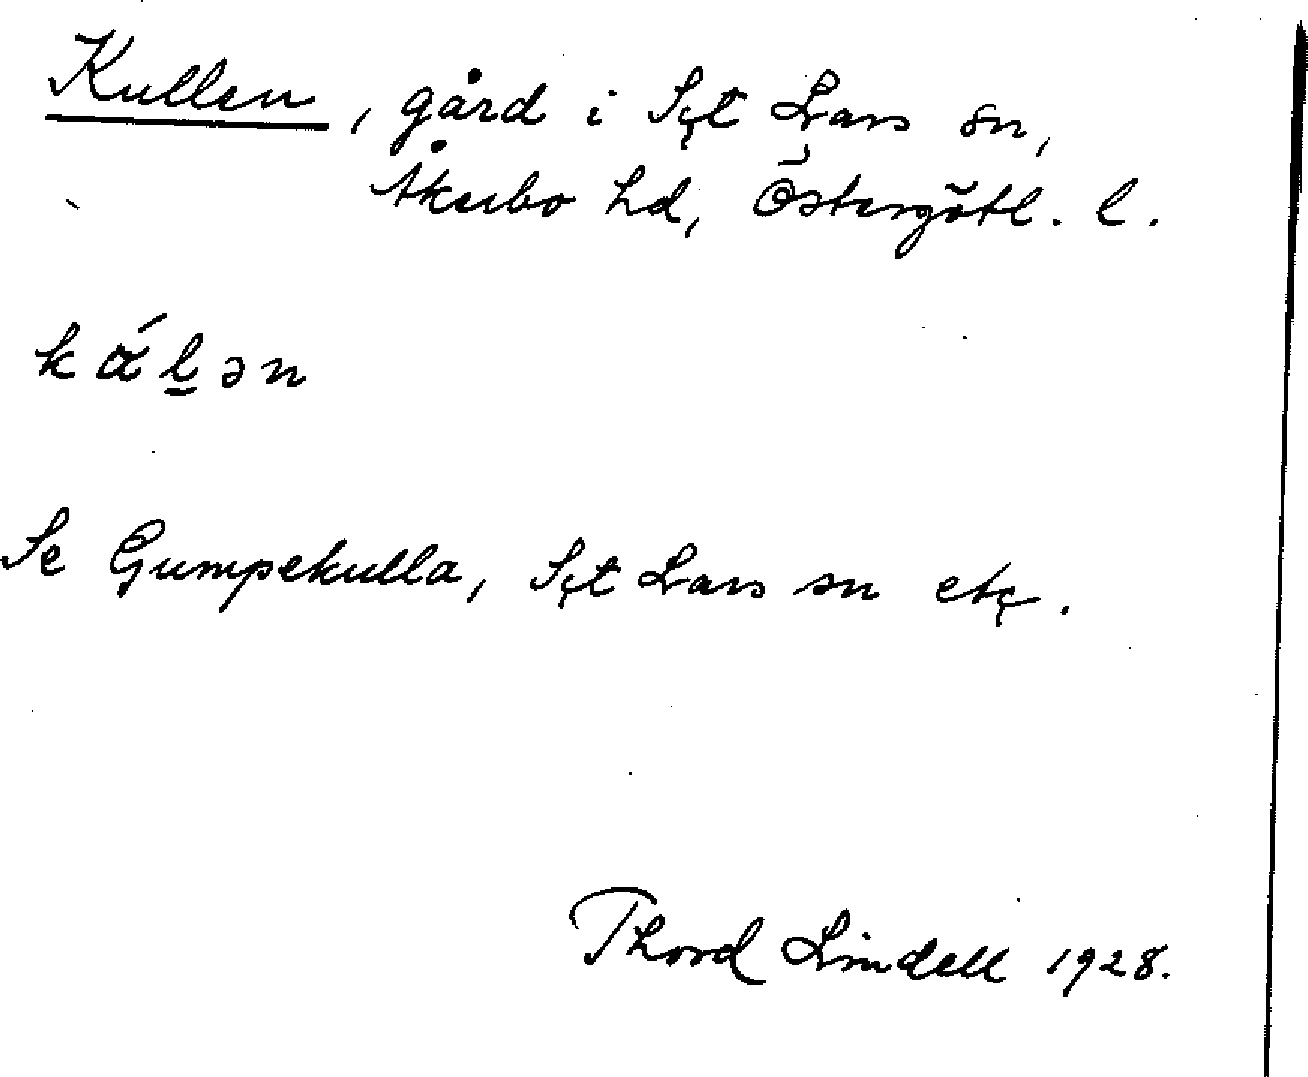 Kullen, gård i S:t Lars sn,
Åkerbo hd, Östergötl. l.
kα�́l̲ən
Se Gumpekulla, S:t Lars sn etc.
Thord Lindell 1928.